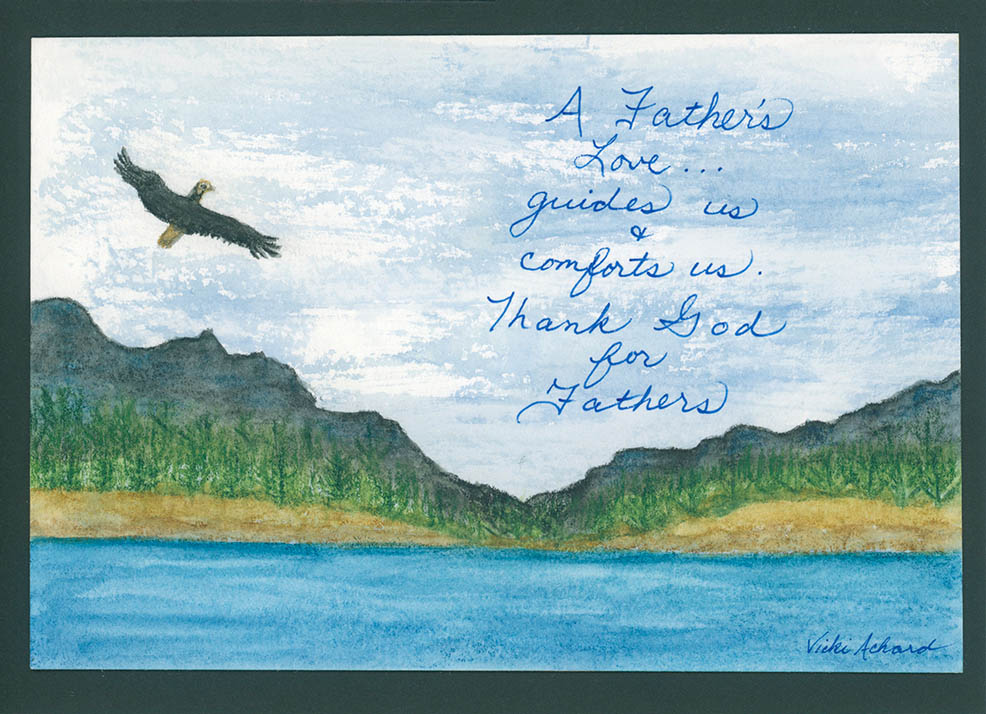 A Father's
Love...
guides us
&
comforts us.
Thank God
for
Fathers
Vicki Achard